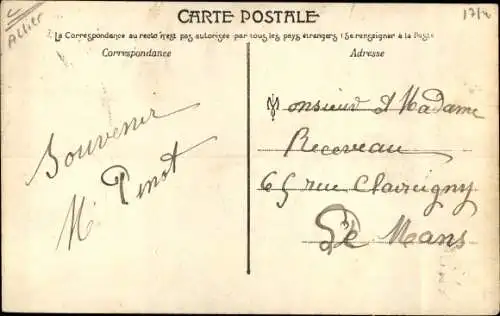 Allier
CARTE POSTALE
17/10
La Correspondance au recto n'est pas autorisée par tous les pays étrangers (Se renseigner à la Poste
Correspondance
Adresse
Souvenir
M Pinot
Monsieur et Madame
Receveau
65 rue Chavigny
Le Mans